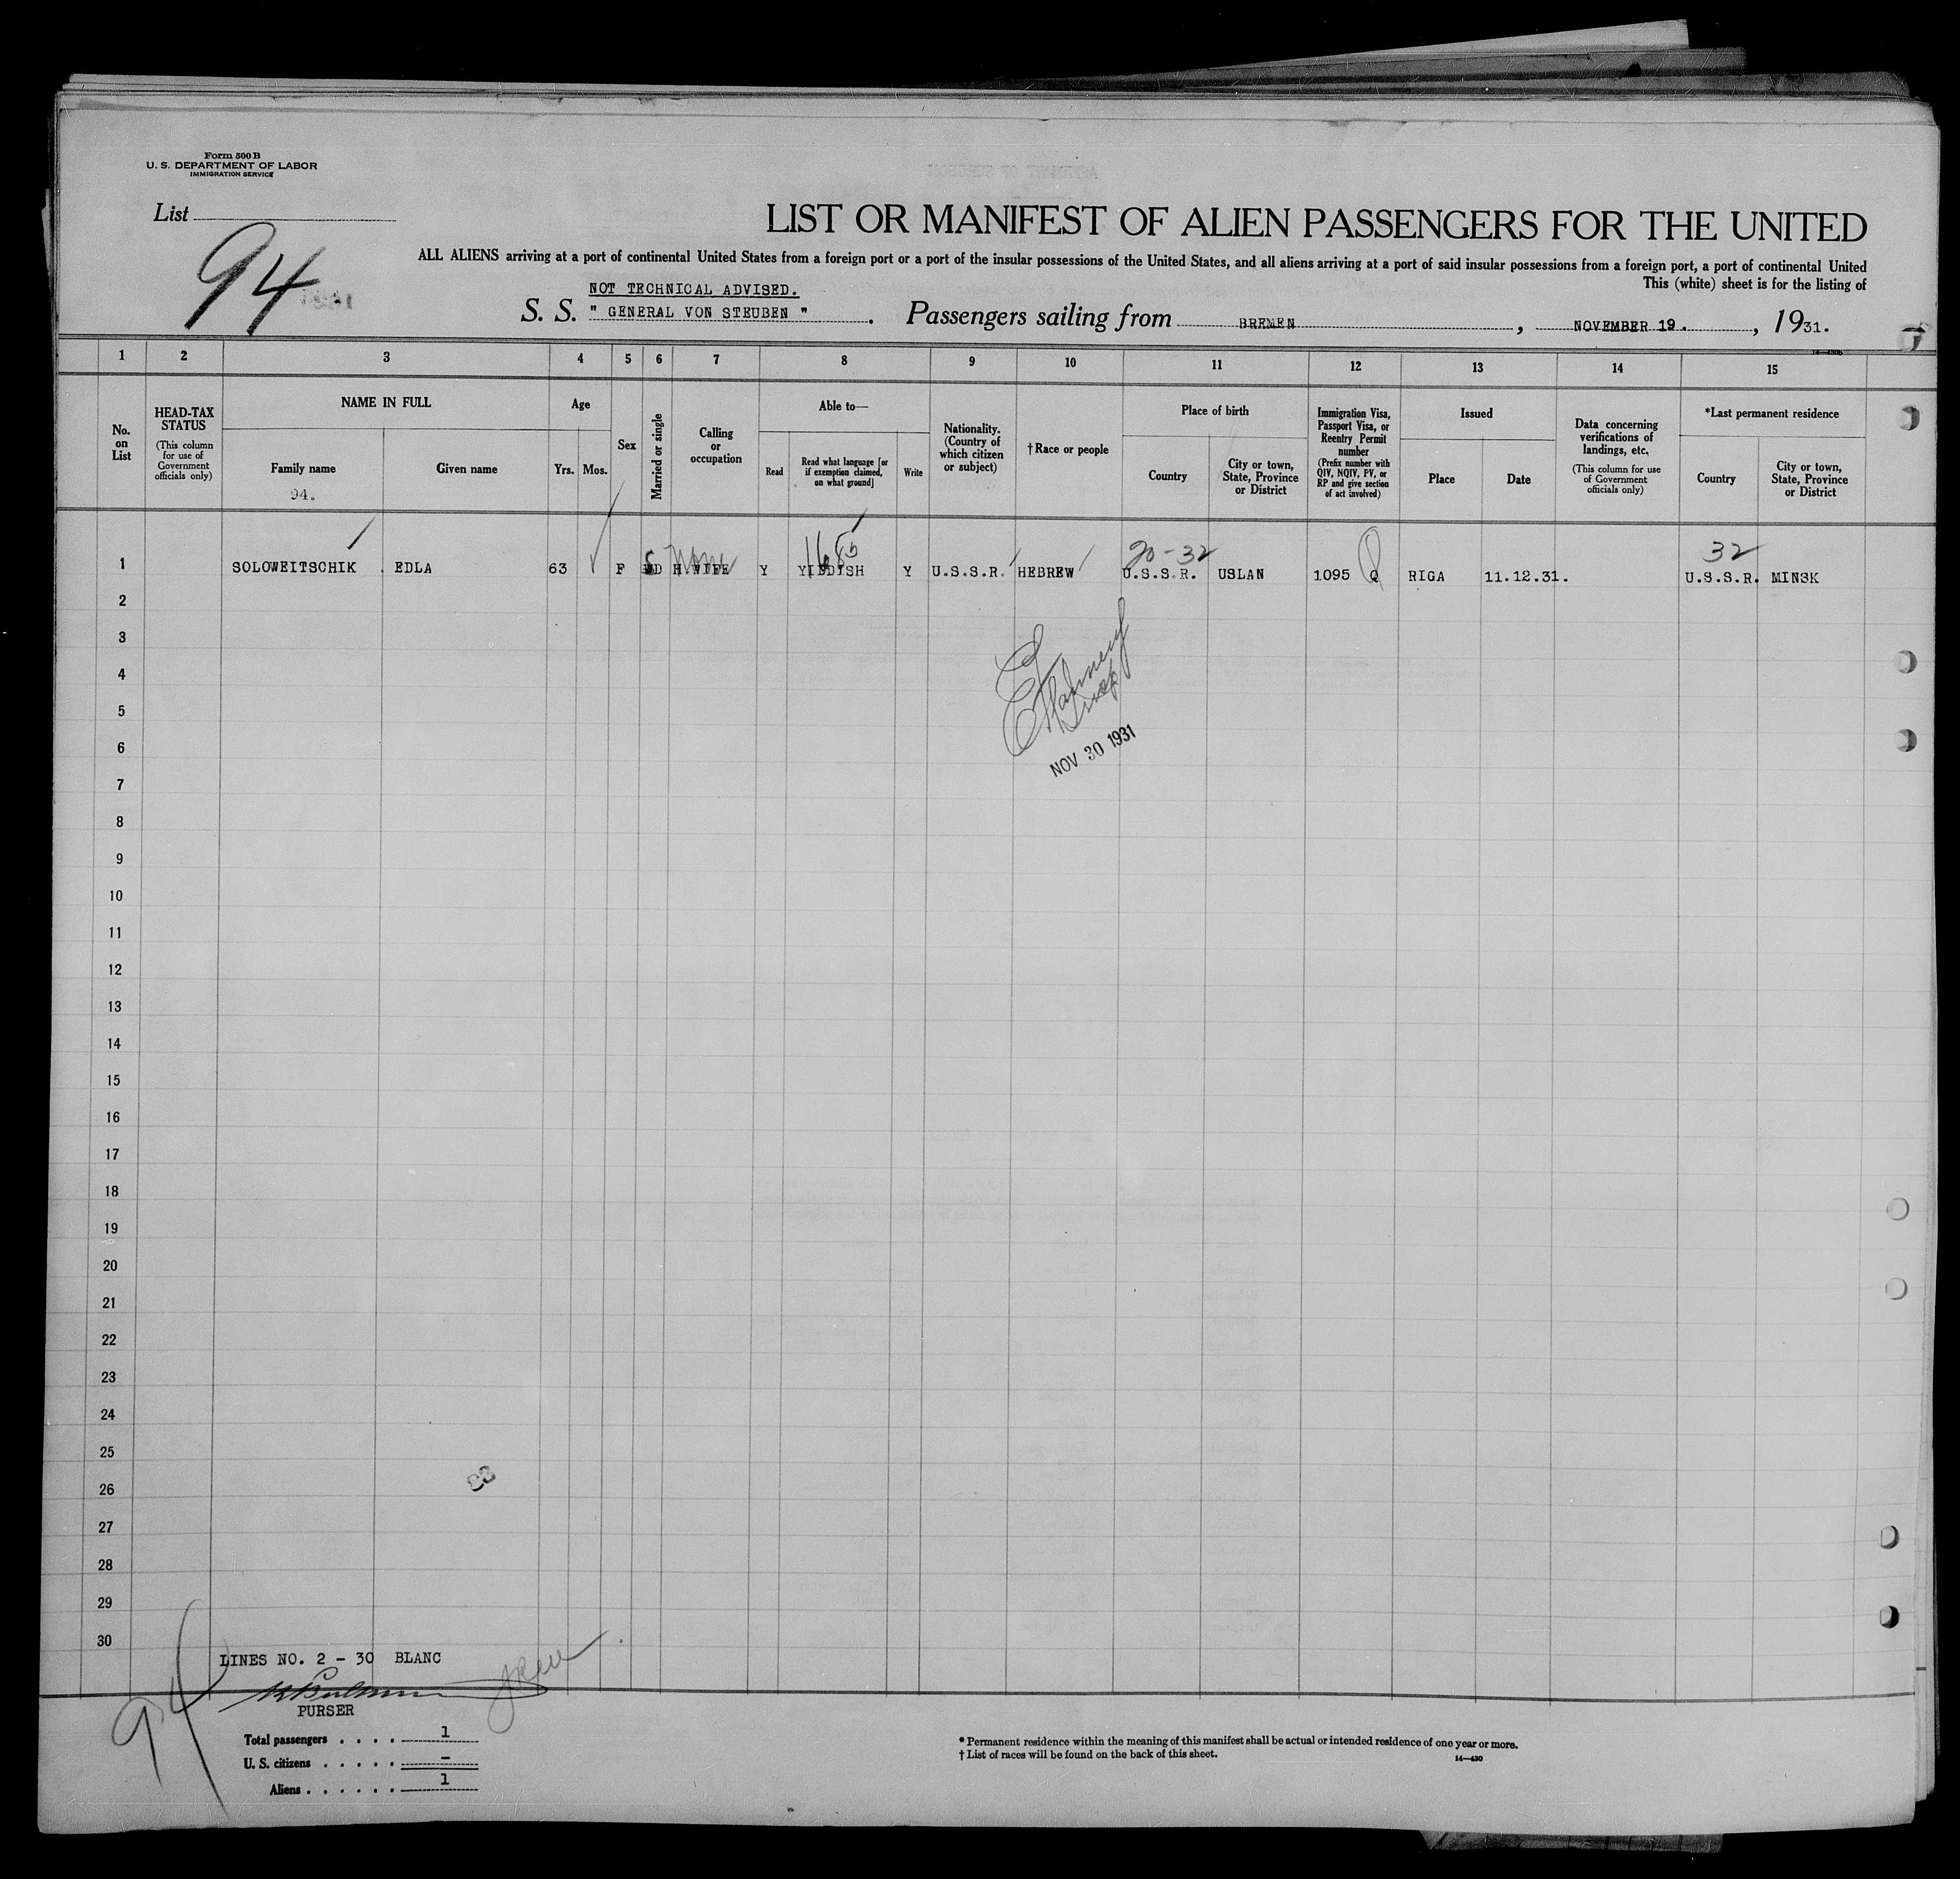 Form 500 B
U. S. DEPARTMENT OF LABOR
IMMIGRATION SERVICE
List
94
LIST OR MANIFEST OF ALIEN PASSENGERS FOR THE UNITED
ALL ALIENS arriving at a port of continental United States from a foreign port or a port of the insular possessions of the United States, and all aliens arriving at a port of said insular possessions from a foreign port, a port of continental United
This (white) sheet is for the listing of
NOT TECHNICAL ADVISED.
S. S. " GENERAL VON STEUBEN " . Passengers sailing from BREMEN , NOVEMBER 19. , 1931.
1 2 3 4 5 6 7 8 9 10 11 12 13 14 15
No. on List
HEAD-TAX STATUS
(This column for use of Government officials only)
NAME IN FULL
Family name
Given name
94.
Age
Yrs. Mos.
Sex
Married or single
Calling or occupation
Able to—
Read
Read what language [or if exemption claimed, on what ground]
Write
Nationality. (Country of which citizen or subject)
†Race or people
Place of birth
Country
City or town, State, Province or District
Immigration Visa, Passport Visa, or Reentry Permit number
(Prefix number with QIV, NQIV, PV, or RP and give section of act involved)
Issued
Place
Date
Data concerning verifications of landings, etc.
(This column for use of Government officials only)
*Last permanent residence
Country
City or town, State, Province or District
20-32
32
1 SOLOWEITSCHIK EDLA 63 F WD H WIFE None Y YIDDISH Y U.S.S.R. HEBREW U.S.S.R. USLAN 1095 Q RIGA 11.12.31. U.S.S.R. MINSK
2
3
4
5
6
NOV 30 1931
7
8
9
10
11
12
13
14
15
16
17
18
19
20
21
22
23
24
25
26
27
28
29
30
LINES NO. 2 - 30 BLANC
PURSER
94
Total passengers . . . . 1
U. S. citizens . . . . . –
Aliens . . . . . . 1
* Permanent residence within the meaning of this manifest shall be actual or intended residence of one year or more.
† List of races will be found on the back of this sheet.
14—430